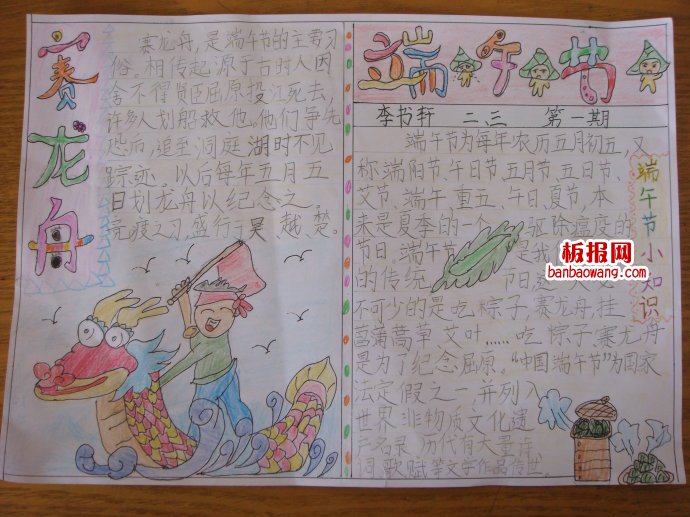 赛龙舟
赛龙舟,是端午节的主要习
俗。相传起源于古时人因
舍不得贤臣屈原投江死去,
许多人划船救他。他们争先
恐后,追至洞庭湖时不见
踪迹。以后每年五月五
日划龙舟以纪念之。
竞渡之习,盛行于吴 越 楚。
端午节
李书轩 二.三 第一期
端午节为每年农历五月初五,又
称端阳节.午日节.五月节.五日节.
艾节.端午.重五.午日.夏节,本
来是夏季的一个 驱除瘟疫的
节日,端午节 是我
的传统 节日,
不可少的是吃粽子,赛龙舟,挂
菖蒲蒿草艾叶……吃粽子赛龙舟
是为了纪念屈原。“中国端午节”为国家
法定假之一并列入
世界非物质文化遗
名录 历代有大量诗
词歌赋等文学作品传世。
端午节小知识
板报网
banbaowang.com